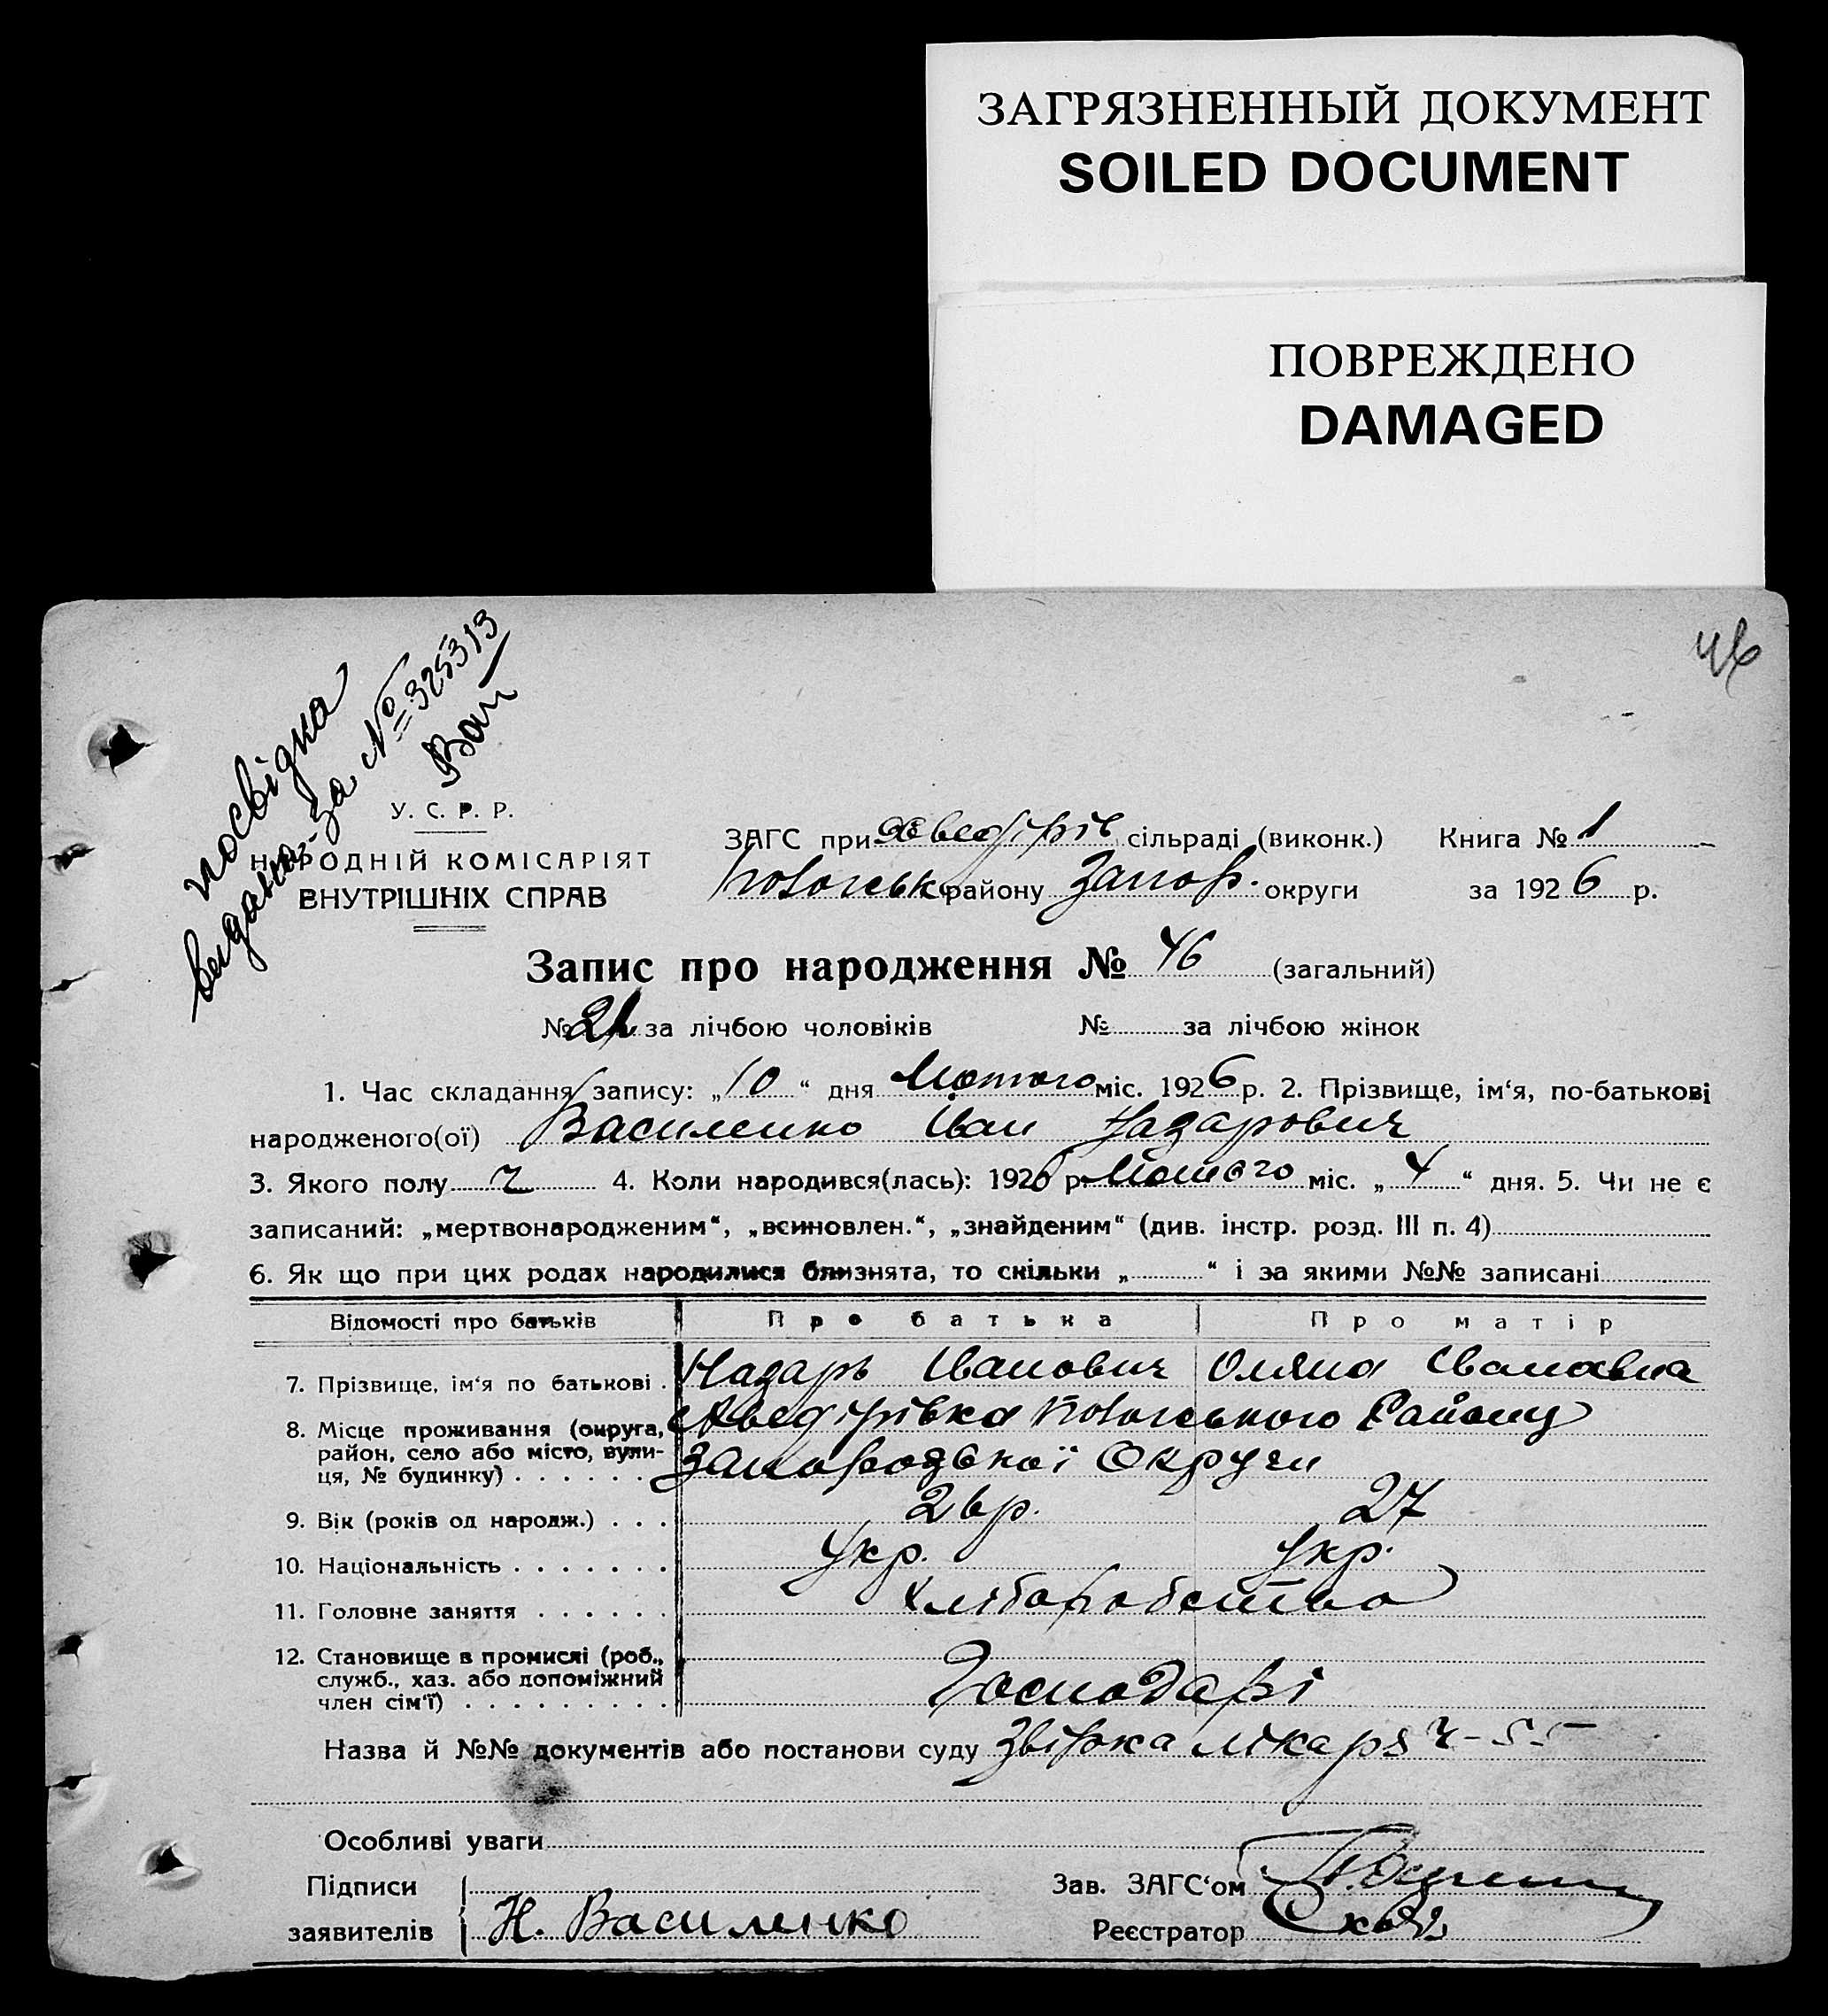 ЗАГРЯЗНЕННЫЙ ДОКУМЕНТ
SOILED DOCUMENT
ПОВРЕЖДЕНО
DAMAGED
46
посвідка
видана за № 325313
У. С. Р. Р.
НАРОДНІЙ КОМІСАРІЯТ
ВНУТРІШНІХ СПРАВ
ЗАГС при Хведірів сільраді (виконк.) Книга № 1
району Запор. округи за 1926 р.
Запис про народження № 46 (загальний)
№ 21 за лічбою чоловіків № за лічбою жінок
1. Час складання запису: „10“ дня Лютого міс. 1926 р. 2. Прізвище, ім‘я, по-батькові
народженого(ої) Василенко Іван Назарович
3. Якого полу ч 4. Коли народився(лась): 1926 р. Лютого міс. „4“ дня. 5. Чи не є
записаний: „мертвонародженим“, „всиновлен.“, „знайденим“ (див. інстр. розд. III п. 4)
6. Як що при цих родах народилися близнята, то скільки „ “ і за якими №№ записані
Відомості про батьків Про батька Про матір
7. Прізвище, ім‘я по батькові . Назарь Іванович Оляна Івановна
8. Місце проживання (округа, район, село або місто, вулиця, № будинку) . . . . . . Хведірівка Району
Запорозької Округи
9. Вік (років од народж.) . . . 26 р. 27
10. Національність . . . . . . . Укр. Укр.
11. Головне заняття . . . . . . Хліборобство
12. Становище в промислі (роб.,
служб., хаз. або допоміжний
член сім‘ї) . . . . . . . . . Господарі
Назва й №№ документів або постанови суду Звірка лікаря
Особливі уваги
Підписи Зав. ЗАГС‘ом
заявителів Н. Василенко Реєстратор